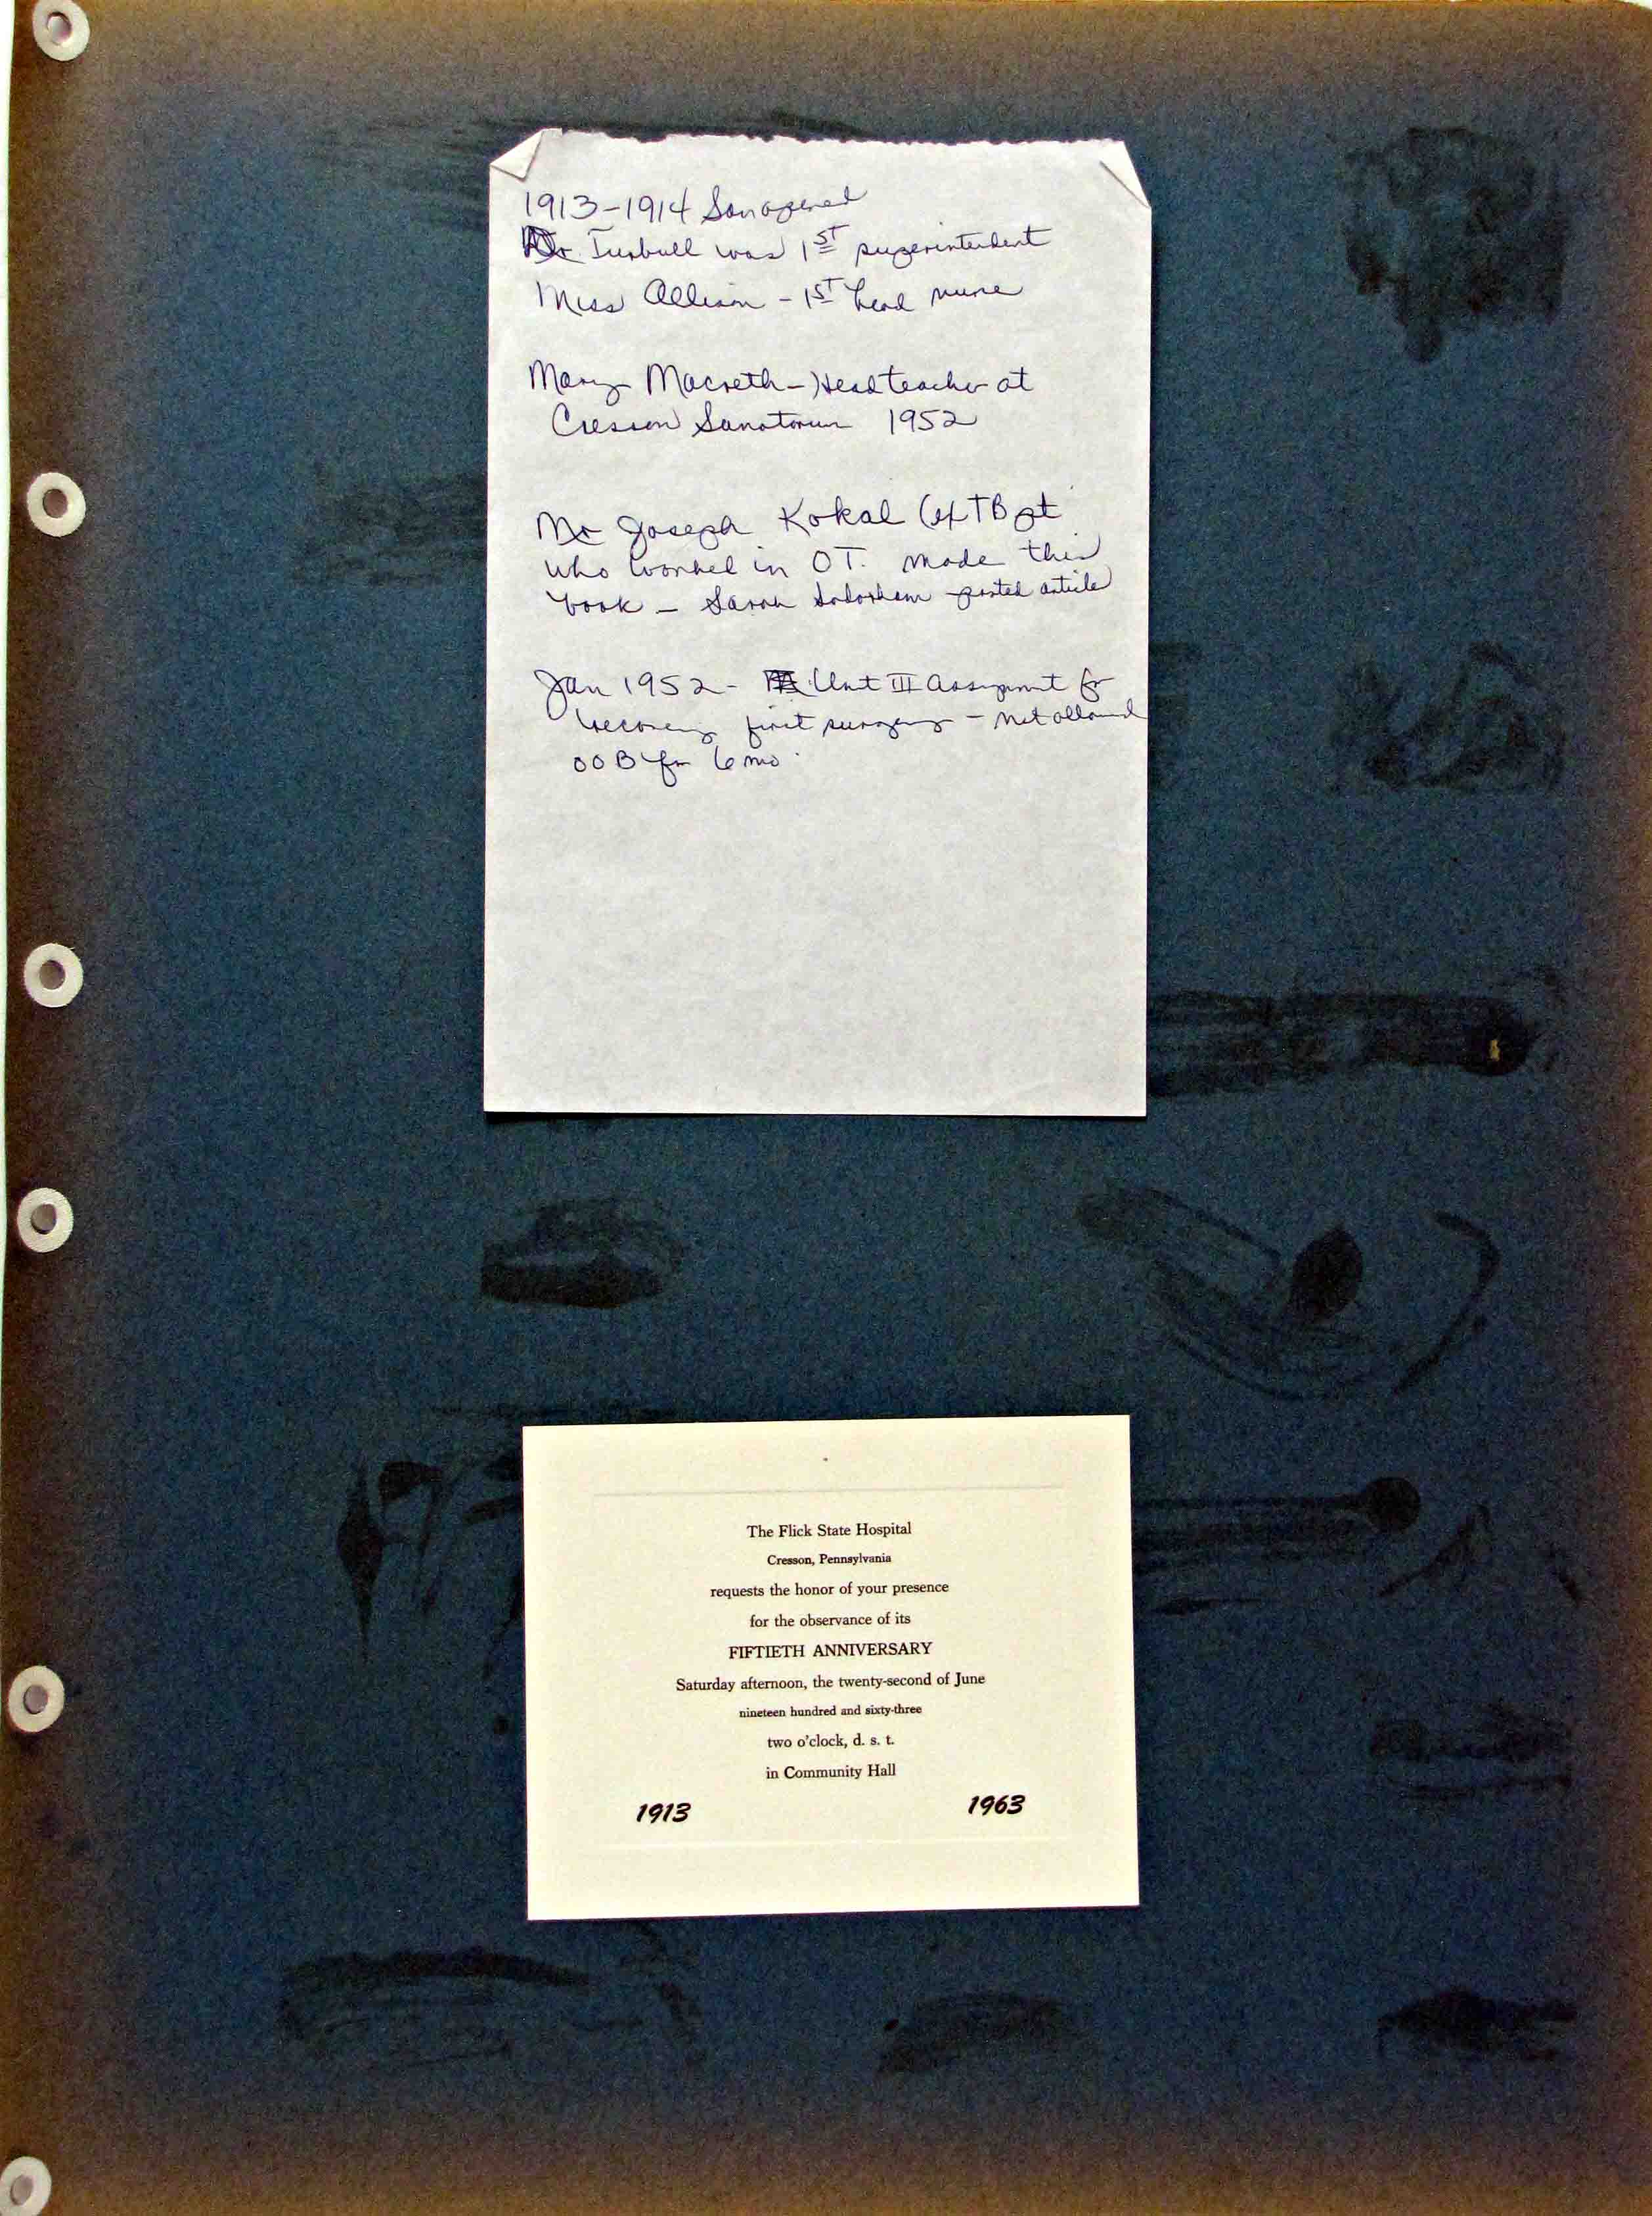 1913-1914 San opened
Dr. Turbull was 1ST superintendent
Miss Allison - 1ST head nurse
Mary Macreth - Head teacher at
Cresson Sanatorium 1952
Mr Joseph Kokal (ex TB pt
who worked in OT. made this
book - Sarah posted article
Jan 1952 - Unit III Assignment for
recovery first surgery - not allowed
OOB for 6 mo.
The Flick State Hospital
Cresson, Pennsylvania
requests the honor of your presence
for the observance of its
FIFTIETH ANNIVERSARY
Saturday afternoon, the twenty-second of June
nineteen hundred and sixty-three
two o'clock, d. s. t.
in Community Hall
1913 1963